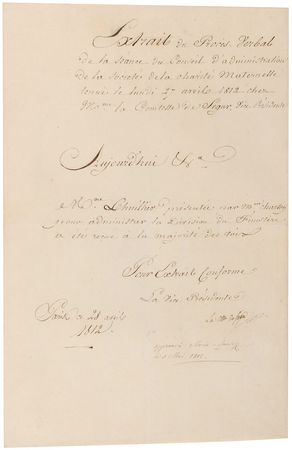 Extrait du Proces Verbal
de la Seance du Conseil d'administration
de la Societe de la charité Maternelle
tenue le lundi 27 avril 1812 chez
Mme la Comtesse de Segur, Vice Présidente
Aujourd'hui &a
Mme Lhuillier présentée par Mme
pour administrer la Division du Finistère
a été reçue à la majorité des voix
Pour Extrait Conforme
La Vice Présidente
Paris ce 28 avril
1812